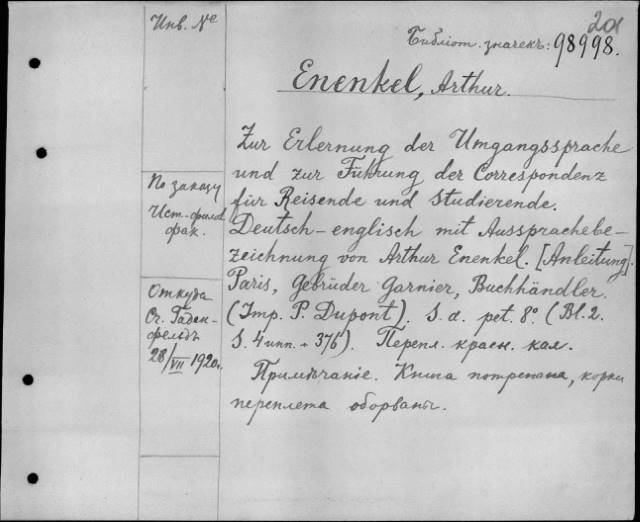 Инв. №
20
Библіот. значекъ: 98998.
Enenkel, Arthur.
Zur Erlernung der Umgangssprache
und zur Führung der Correspondenz
für Reisende und Studierende.
Deutsch-englisch mit Aussprachebe-
zeichnung von Arthur Enenkel. [Anleitung].
Paris, Gebrüder Garnier, Buchhändler.
(Imp. P. Dupont). S. a. pet. 8º. (Bl. 2.
S. 4 ипп. + 376). Перепл. красн. кал.
Примѣчаніе. Книга потрепана, корки
переплета оборваны.
По заказу
Ист.-филол.
фак.
Откуда
От Гаден-
фельдъ
28/VII 1920 г.